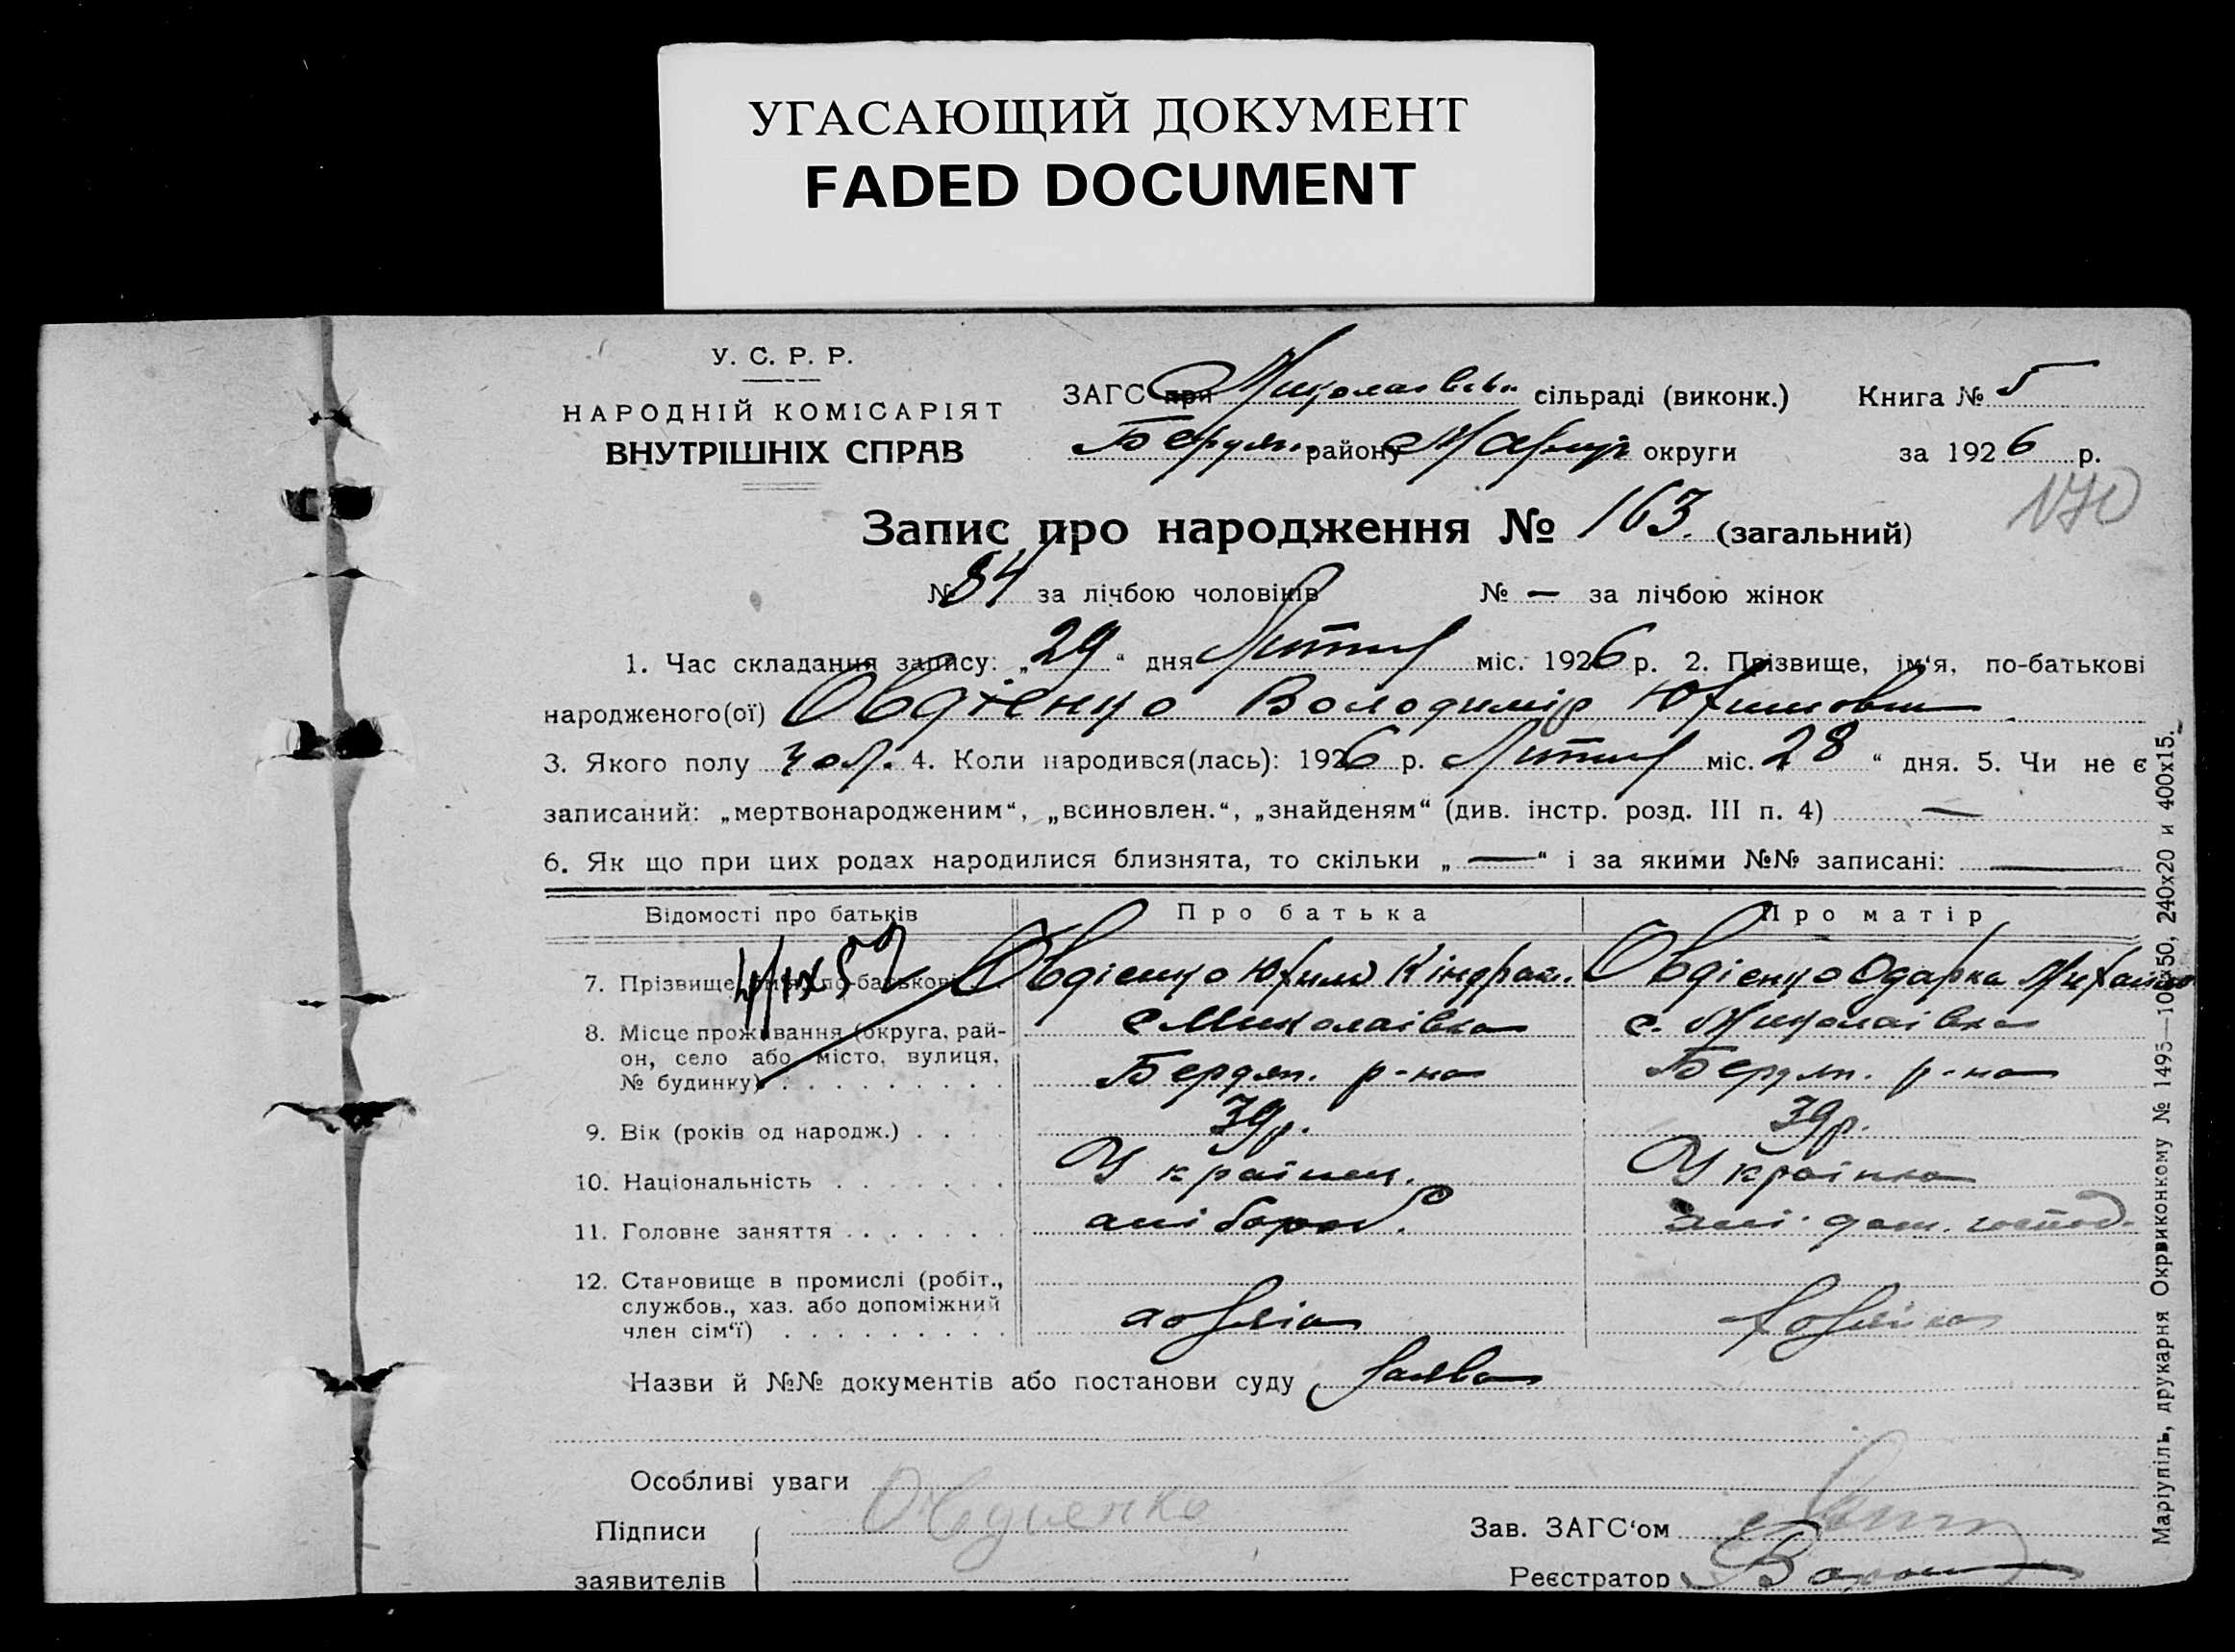 УГАСАЮЩИЙ ДОКУМЕНТ
FADED DOCUMENT
У. С. Р. Р.
НАРОДНІЙ КОМІСАРІЯТ
ВНУТРІШНІХ СПРАВ
ЗАГС при Миколаївськ сільраді (виконк.) Книга № 5
Бердян. району Маріуп округи за 1926 р.
170
Запис про народження № 163. (загальний)
№ 84 за лічбою чоловіків № — за лічбою жінок
1. Час складання запису: „29“ дня міс. 1926 р. 2. Прізвище, ім‘я, по-батькові
народженого(ої) Овдієнко Володимір Юхимович
3. Якого полу чол. 4. Коли народився(лась): 1926 р. міс. 28“ дня. 5. Чи не є
записаний: „мертвонародженим“, „всиновлен.“, „знайденям“ (див. інстр. розд. III п. 4) —
6. Як що при цих родах народилися близнята, то скільки „—“ і за якими №№ записані: —
Відомості про батьків Про батька Про матір
7. Прізвище, ім‘я, по-батькові Овдієнко Юхим Кіндрат. Овдієнко Одарка
8. Місце проживання (округа, рай- с Миколаівка с. Миколаівка
он, село або місто, вулиця,
№ будинку) Бердян. р-на Бердян. р-на
9. Вік (років од народж.) 39р. 39р.
10. Національність Українец. Українка
11. Головне заняття дом. господ.
12. Становище в промислі (робіт.,
службов., хаз. або допоміжний
член сім‘ї)
Назви й №№ документів або постанови суду Заява
Особливі уваги
Підписи Овдиенко Зав. ЗАГС‘ом
заявителів Реєстратор
Маріупіль, друкарня Окрвиконкому № 1495—10х50, 240х20 и 400х15.